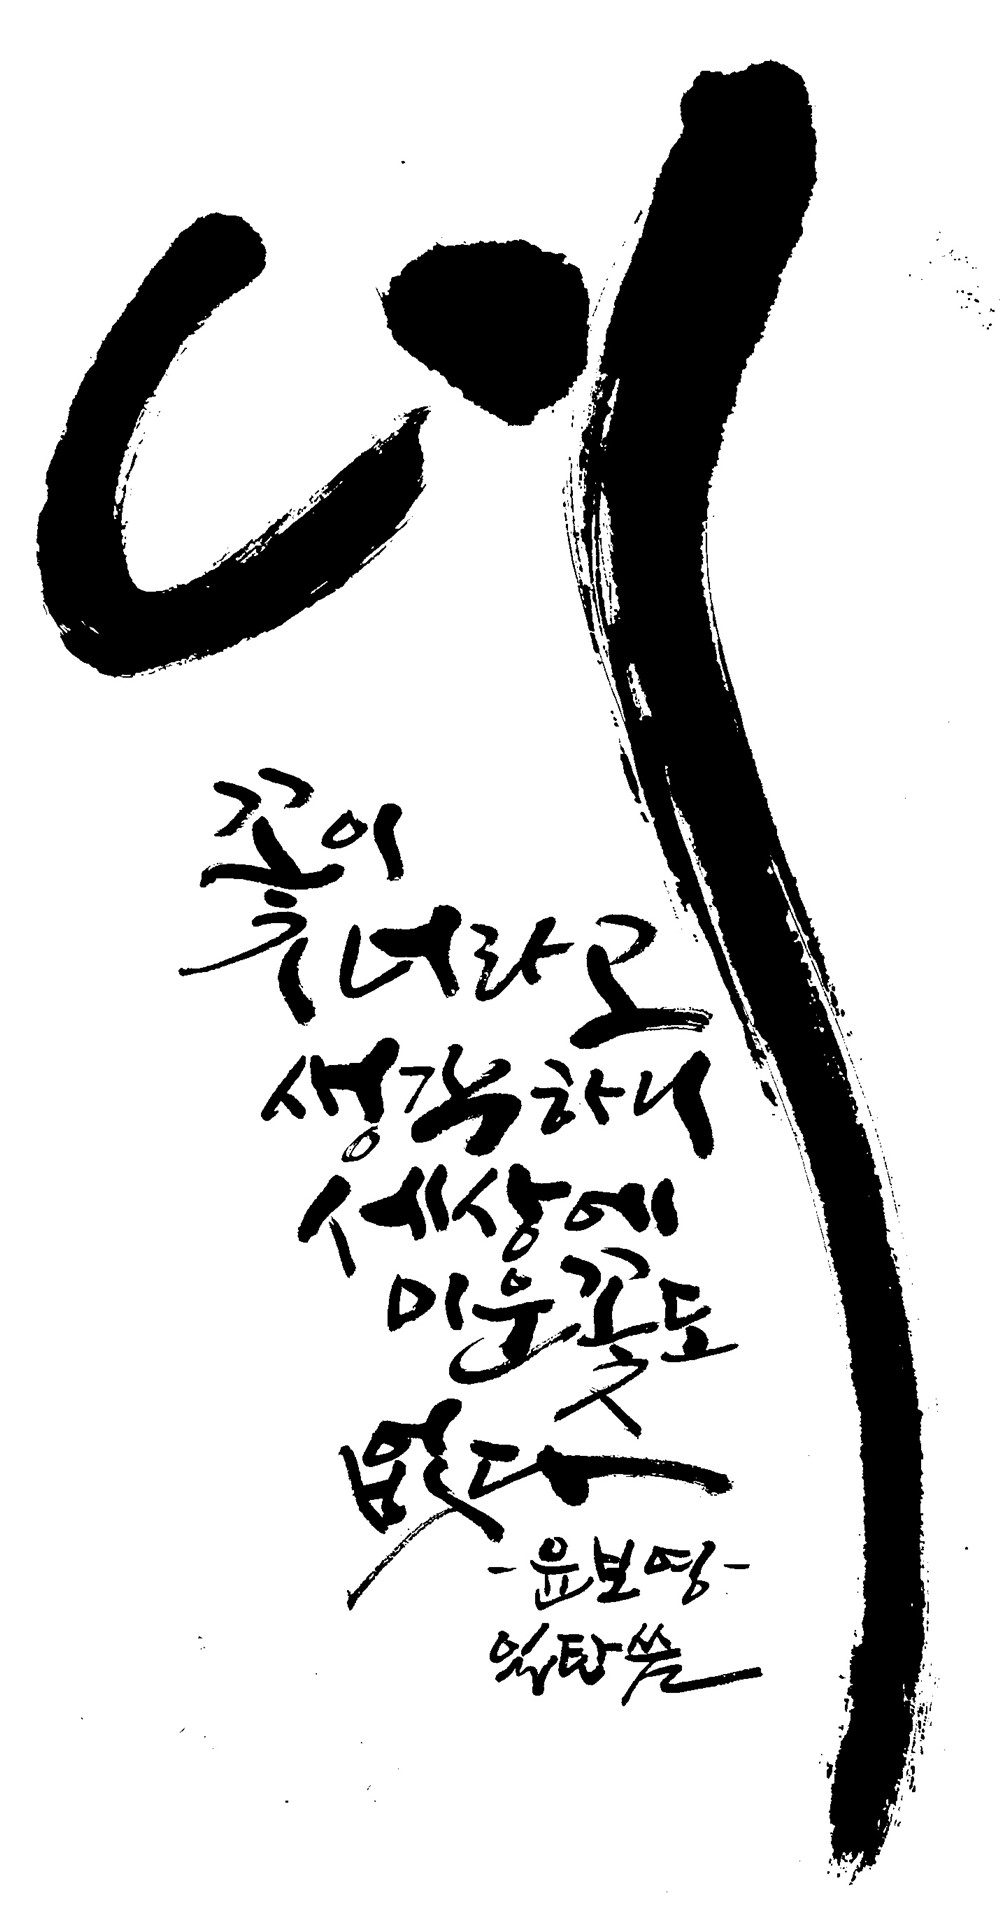 너
꽃이
너라고
생각하니
세상에
미운 꽃도
없다
-윤보영-
씀